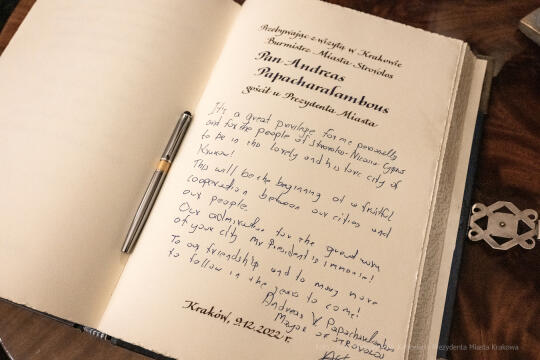 Przebywając z wizytą w Krakowie
Burmistrz Miasta Strovolos
Pan Andreas
Papacharalambous
gościł u Prezydenta Miasta
It's a great privilege for me personally
and for the people of Strovolos-Nicosia Cyprus
to be in the lovely and historic city of
Krakow!
This will be the beginning of a fruitful
cooperation between our cities and
our people.
Our admiration for the great work
of your city Mr President is immense!
To our friendship and to many more
to follow in the years to come!
Andreas Papacharalambous
Mayor of Strovolos
Kraków, 9.12.2022 r.
Prezydenta Miasta Krakowa